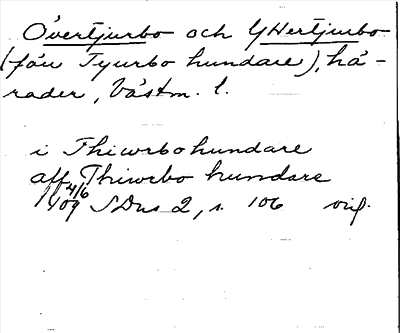 Övertjurbo och Yttertjurbo
(förr Tyurbo hundare), hä-
rader, Västm. l.
i Thiwrbohundare
aff Thiwrbo hundare
4/6 1409 SDns 2, s. 106 orig.